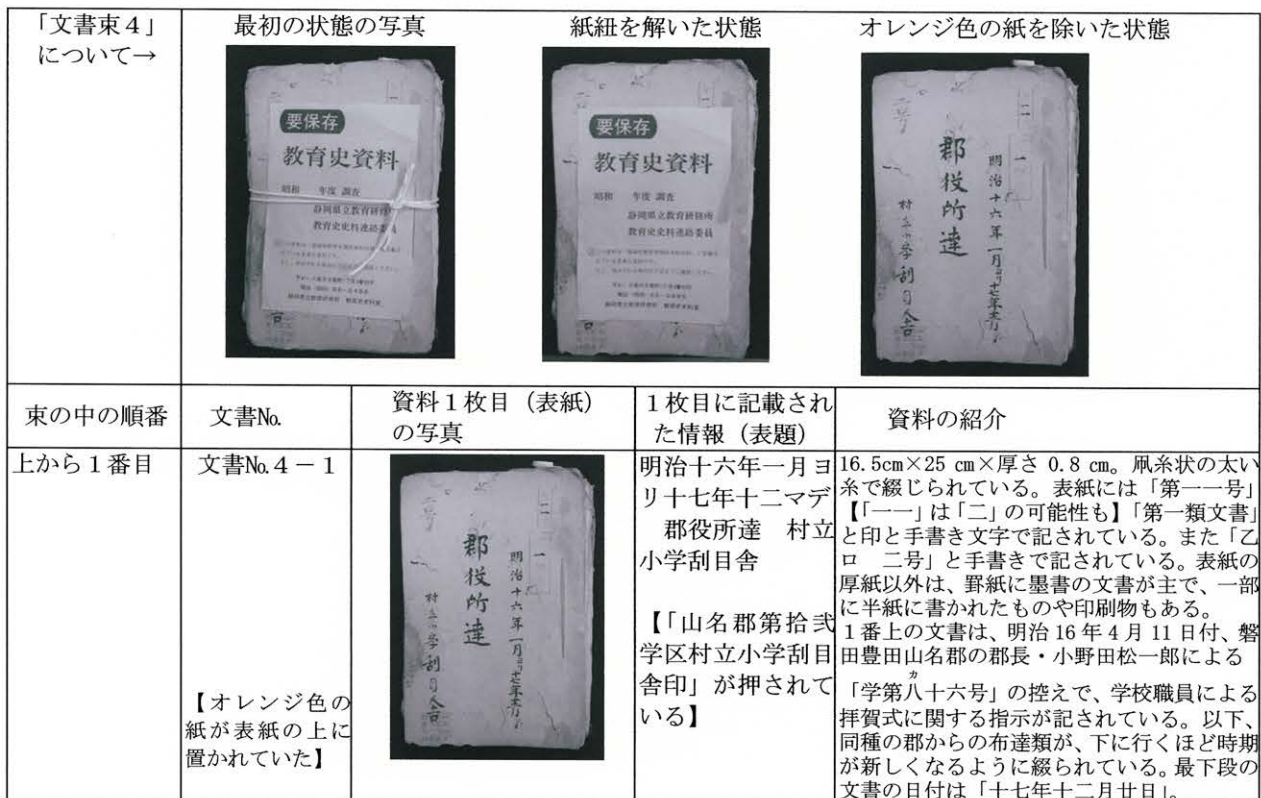 「文書束４」
について→
最初の状態の写真
紙紐を解いた状態
オレンジ色の紙を除いた状態
要保存
教育史資料
昭和　年度 調査
静岡県立教育研修所
教育史史料連絡委員
要保存
教育史資料
昭和　年度 調査
静岡県立教育研修所
教育史史料連絡委員
二号
郡役所達
明治十六年一月ヨリ十七年十二マデ
村立小学刮目舎
束の中の順番
文書№
資料１枚目（表紙）
の写真
１枚目に記載され
た情報（表題）
資料の紹介
上から１番目
文書№４－１
【オレンジ色の
紙が表紙の上に
置かれていた】
二号
郡役所達
明治十六年一月ヨリ十七年十二マデ
村立小学刮目舎
明治十六年一月ヨ
リ十七年十二マデ
郡役所達　村立
小学刮目舎
【「山名郡第拾弐
学区村立小学刮目
舎印」が押されて
いる】
16.5㎝×25 ㎝×厚さ 0.8 ㎝。凧糸状の太い
糸で綴じられている。表紙には「第一一号」
【「一一」は「二」の可能性も】「第一類文書」
と印と手書き文字で記されている。また「乙
ロ　二号」と手書きで記されている。表紙の
厚紙以外は、罫紙に墨書の文書が主で、一部
に半紙に書かれたものや印刷物もある。
１番上の文書は、明治 16 年 4 月 11 日付、磐
田豊田山名郡の郡長・小野田松一郎による
カ
「学第八十六号」の控えで、学校職員による
拝賀式に関する指示が記されている。以下、
同種の郡からの布達類が、下に行くほど時期
が新しくなるように綴られている。最下段の
文書の日付は「十七年十二月廿日」。